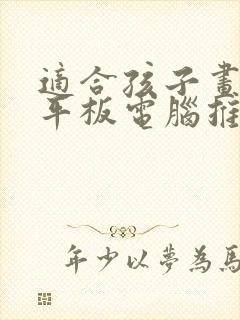 適合孩子畫
平板電腦推
年少以夢為馬